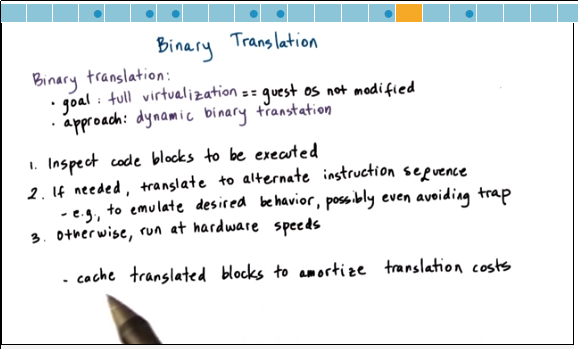 Binary Translation
Binary translation:
· goal: full virtualization == guest OS not modified
· approach: dynamic binary transtation
1. Inspect code blocks to be executed
2. If needed, translate to alternate instruction sequence
- e.g., to emulate desired behavior, possibly even avoiding trap
3. Otherwise, run at hardware speeds
- cache translated blocks to amortize translation costs